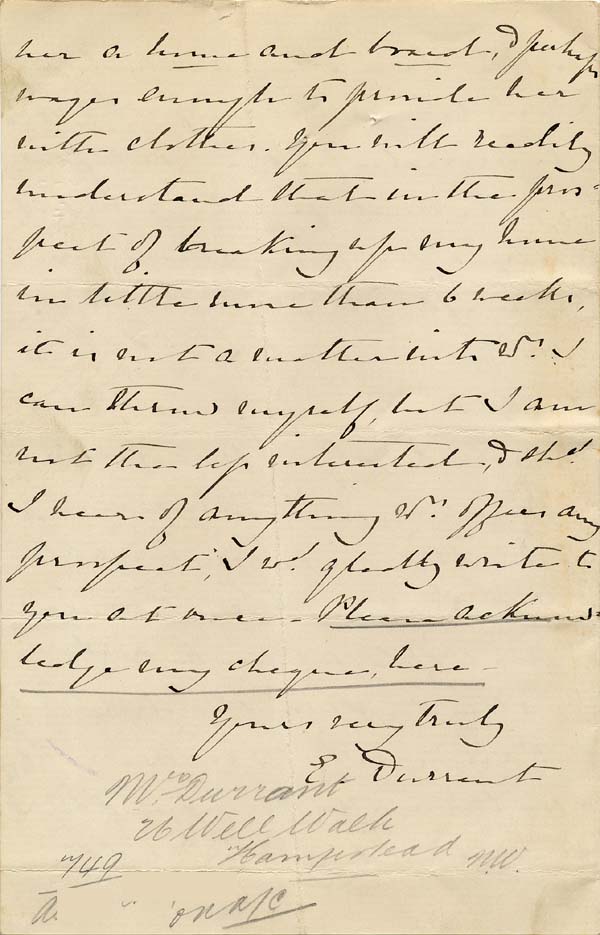 her a home and board, & perhaps
wages enough to provide her
with clothes. You will readily
understand that in the pros-
pect of breaking up my home
in little more than 6 weeks,
it is not a matter into wh. I
can throw myself, but I am
not the less interested, & shd.
I hear of anything wh. offers any
prospect, I wd. gladly write to
you at once - Please acknow-
ledge my cheque, here -
Yours very truly
E. Durrant
Mrs Durrant
26 Well Walk
Hampstead N.W.
749
on a/c